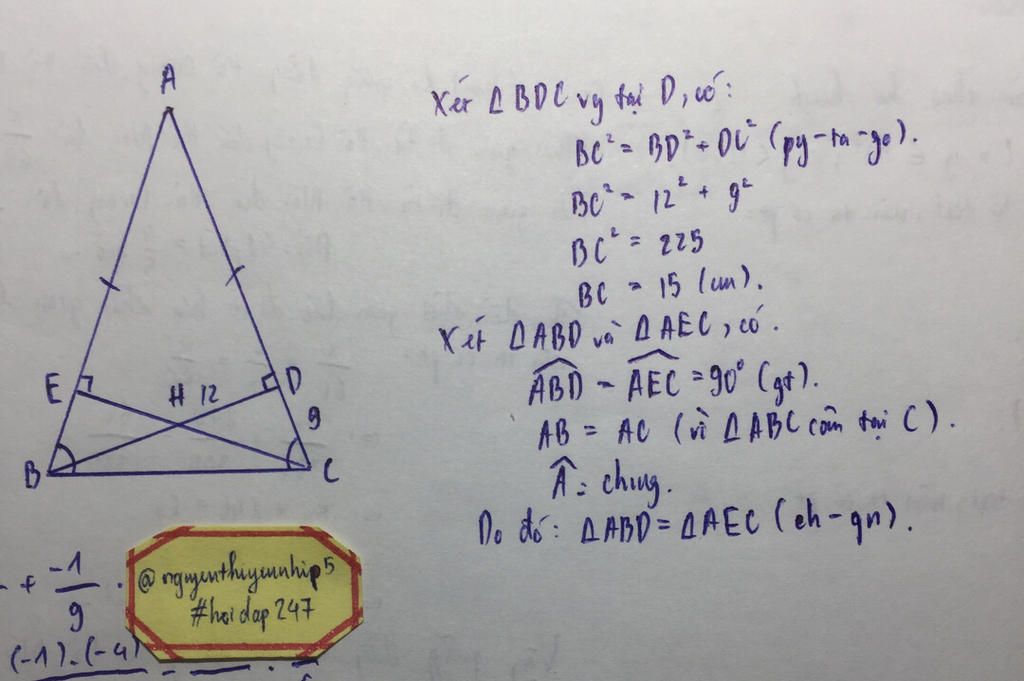 A
E
D
H 12
9
B
C
Xét ΔBDC vg tại D, có:
BC² = BD² + DC² (py-ta-go).
BC² = 12² + 9²
BC² = 225
BC = 15 (cm).
Xét ΔABD và ΔAEC, có.
ABD̂ = AEĈ = 90° (gt).
AB = AC (vì ΔABC cân tại C).
Â = chung.
Do đó: ΔABD = ΔAEC (ch - gn).
+ -1/9 .
@nguyenthiyennhip5
#hoidap247
(-1).(-4)